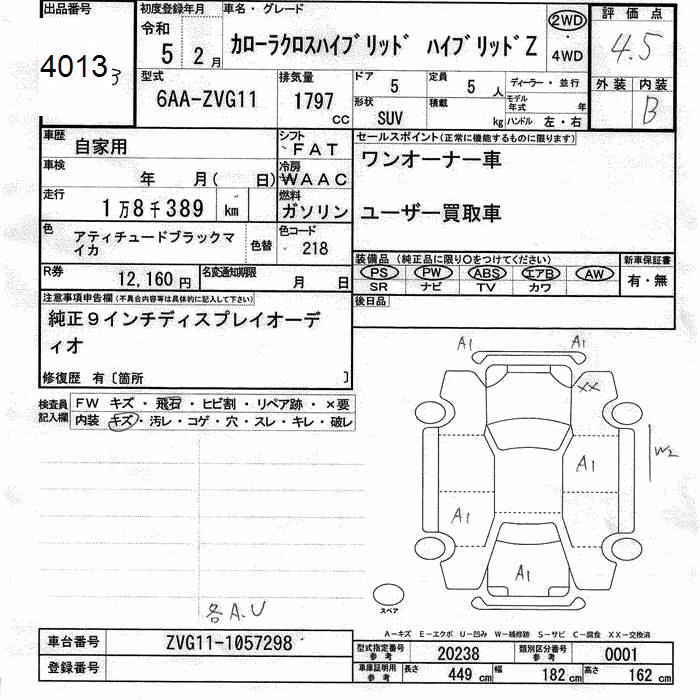 出品番号 初度登録年月 車名・グレード 2WD 評価点
令和
4013 3 5 2月 カローラクロスハイブリッド ハイブリッドZ ・ 4.5
4WD
型式 排気量 ドア 定員 ディーラー・並行 外装 内装
6AA-ZVG11 1797 CC 5 5人 モデル年式 年 B
形状 積載
SUV kg ハンドル 左・右
車歴 自家用 シフト FAT セールスポイント(正常に機能するものに限ります)
車検 年 月( 日) 冷房 WAAC ワンオーナー車
走行 1万8千389 km 燃料 ガソリン ユーザー買取車
色 アティチュードブラックマイカ 色替 色コード 218
装備品(純正品に限り○をつけてください) 新車保証書
R券 12,160円 名変通知期限 月 日 PS PW ABS エアB AW 有・無
SR ナビ TV カワ
注意事項申告欄(不具合内容等は具体的に記入して下さい) 後日品
純正9インチディスプレイオーデ
ィオ
修復歴 有〔箇所 〕
A1 A1
XX
検査員記入欄 FW キズ・飛石・ヒビ割・リペア跡・×要
内装 キズ・汚レ・コゲ・穴・スレ・キレ・破レ
A1 W2
A1
A1
スペア
各A.U
A-キズ E-エクボ U-凹み W-補修跡 S-サビ C-腐食 XX-交換済
車台番号 ZVG11-1057298
型式指定番号参考 20238 類別区分番号参考 0001
登録番号
車庫証明用参考 長さ 449cm 幅 182cm 高さ 162cm